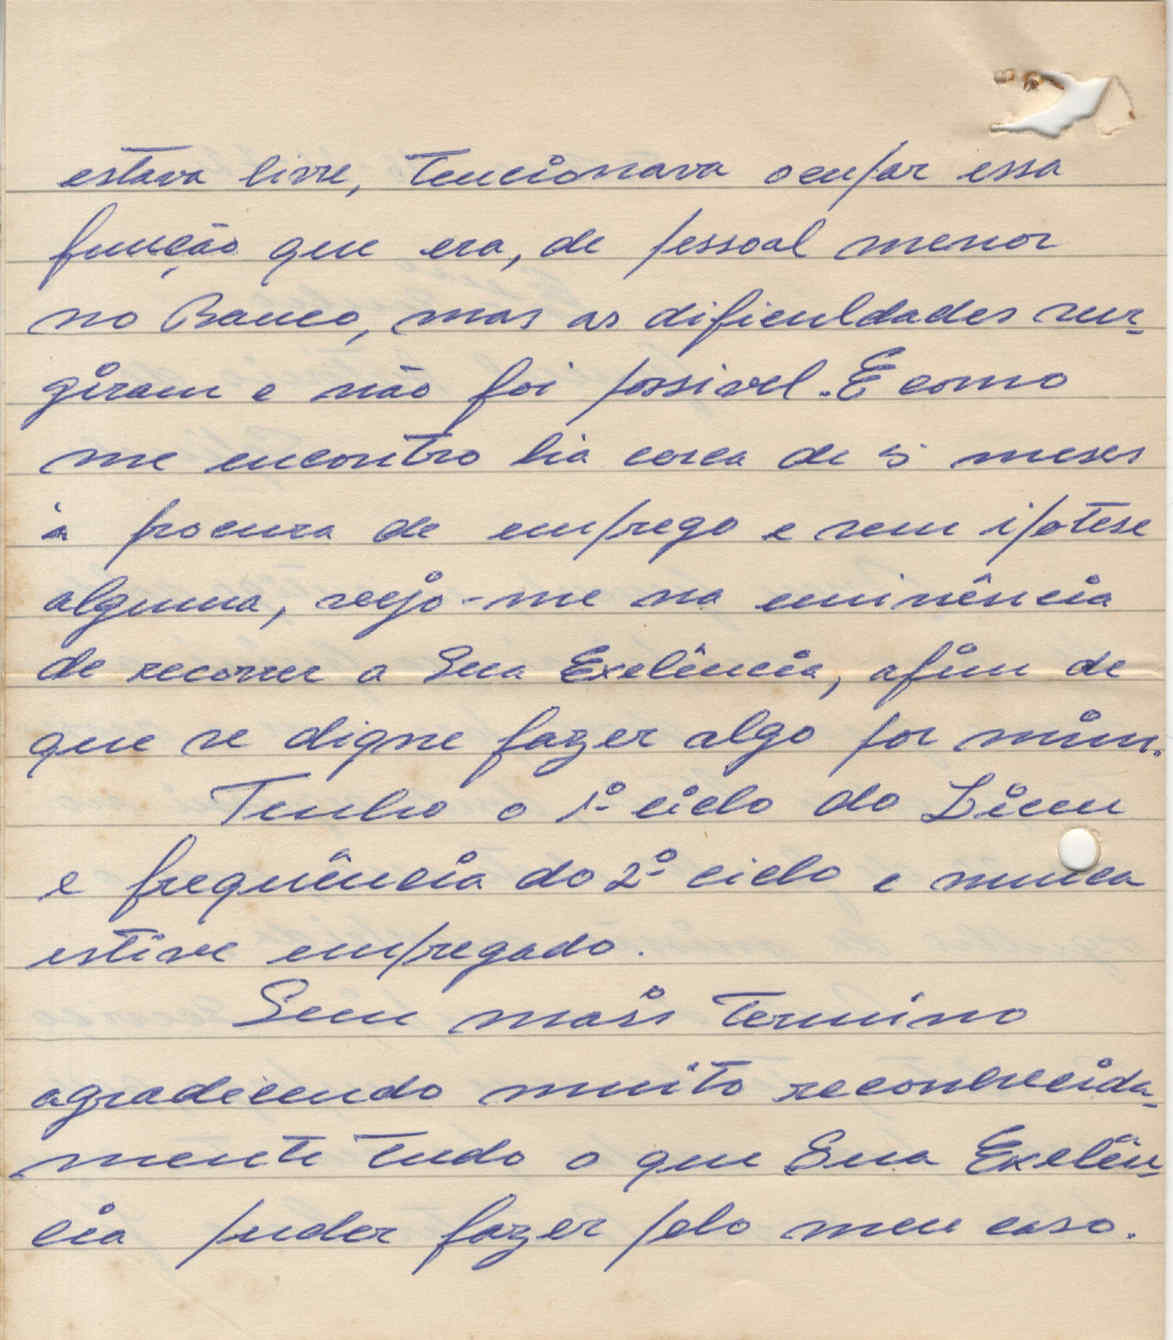 estava livre, tencionava ocupar essa
função que era, de pessoal menor
no Banco, mas as dificuldades sur-
giram e não foi possivel. E como
me encontro há cerca de 5 meses
à procura de emprego e sem ipotese
alguma, vejo-me na eminência
de recorrer a Sua Exelência, afim de
que se digne fazer algo por mim.
Tenho o 1º ciclo do Liceu
e frequência do 2º ciclo e nunca
estive empregado.
Sem mais termino
agradecendo muito reconhecida-
mente tudo o que Sua Exelên-
cia puder fazer pelo meu caso.